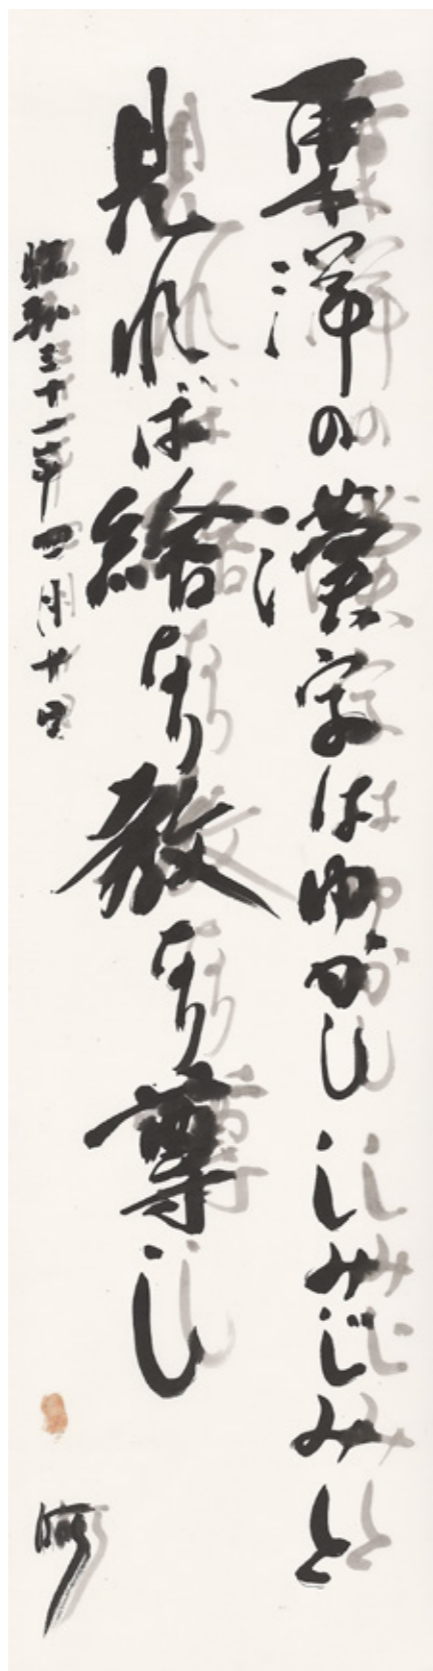 東洋の漢字はゆかし しみじみと
見れば繪なり教なり尊し
昭和三十一年四月廿日